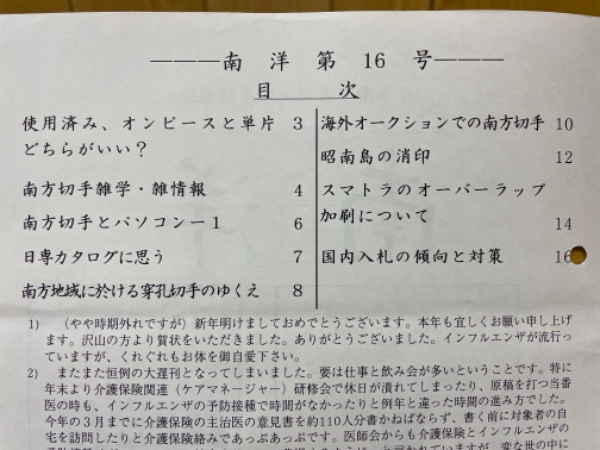 ———南 洋 第 16 号———
目 次
使用済み、オンピースと単片 3
どちらがいい？
南方切手雑学・雑情報 4
南方切手とパソコンー1 6
日専カタログに思う 7
南方地域に於ける穿孔切手のゆくえ 8
海外オークションでの南方切手 10
昭南島の消印 12
スマトラのオーバーラップ
加刷について 14
国内入札の傾向と対策 16
1) （やや時期外れですが）新年明けましておめでとうございます。本年も宜しくお願い申し上げ
ます。沢山の方より賀状をいただきました。ありがとうございました。インフルエンザが流行っ
ていますが、くれぐれもお体を御自愛下さい。
2) またまた恒例の大遅刊となってしまいました。要は仕事と飲み会が多いということです。特に
年末より介護保険関連（ケアマネージャー）研修会で休日が潰れてしまったり、原稿を打つ当番
医の時も、インフルエンザの予防接種で時間がなかったりと例年と違った時間の進み方でした。
今年の３月までに介護保険の主治医の意見書を約110人分書かねばならず、書く前に対象者の自
宅を訪問したりと介護保険絡みであっぷあっぷです。医師会からも介護保険とインフルエンザの